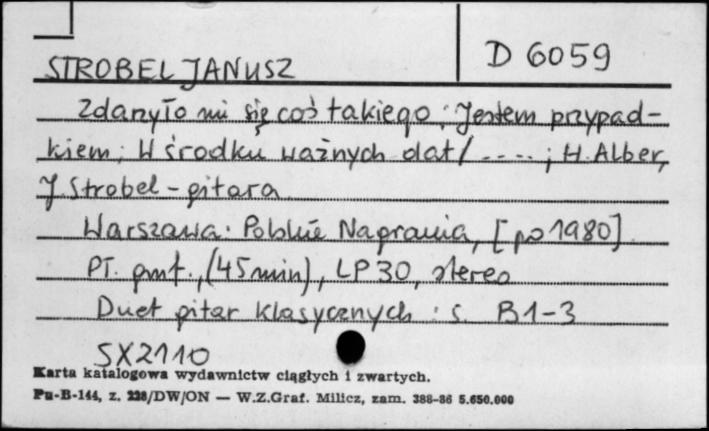 STROBEL JANUSZ
D 6059
Zdarzyło mi się coś takiego; Jestem przypad-
kiem; W środku ważnych dat / ....; H. Alber,
J. Strobel - gitara
Warszawa: Polskie Nagrania, [po 1980].
Pł. gmf., (45 min), LP 30, stereo
Duet gitar klasycznych : s. B1-3
SX2110
Karta katalogowa wydawnictw ciągłych i zwartych.
Pu-B-144, z. 228/DW/ON — W.Z.Graf. Milicz, zam. 388-86 5.650.000